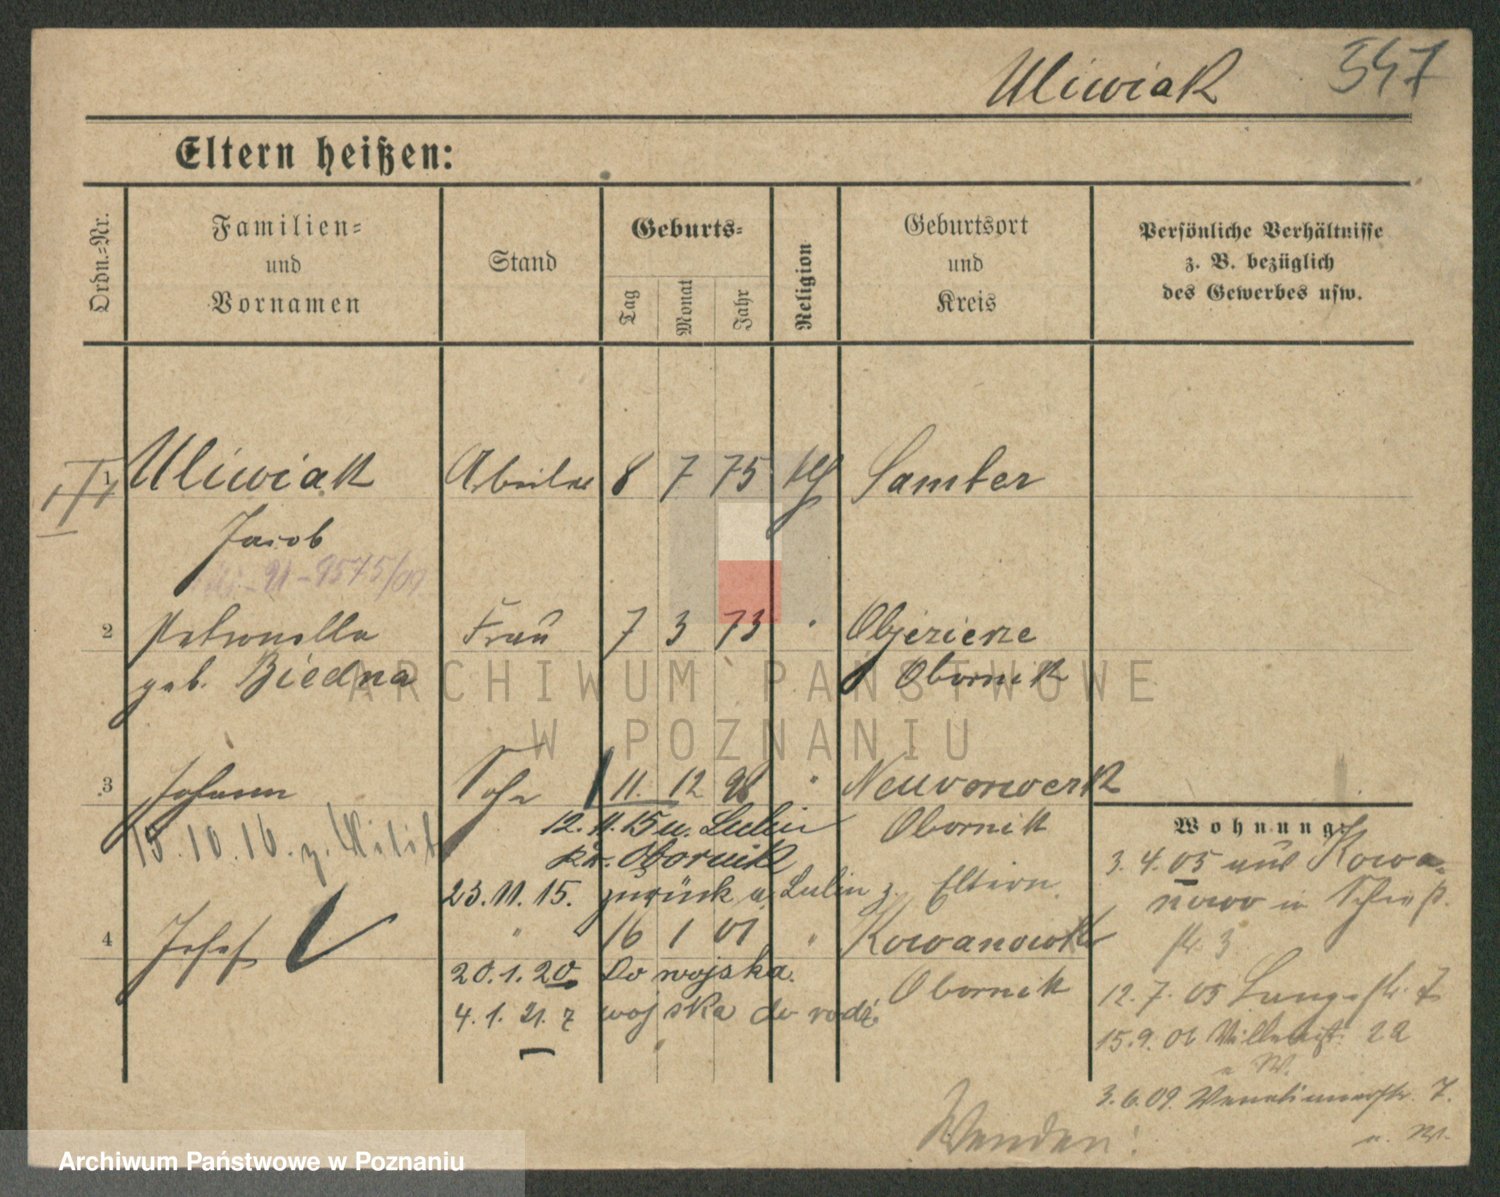 Uliwiak 547
Eltern heißen:
Ordn.-Nr.
Familien- und Vornamen
Stand
Geburts-
Tag
Monat
Jahr
Religion
Geburtsort und Kreis
Persönliche Verhältnisse
z. B. bezüglich
des Gewerbes usw.
1 Uliwiak 8 7 75 Samter
Jacob
2 Petronella Frau 7 3 73 " Objezierze
geb. Biedna Obornik
3 Johann Sohn 11. 12 98 " Neuvorwerk
12. 11. 15 n. Lulin Obornik
15.10.16. z.
Kr. Obornik
23. 11. 15. zurück a. Lulin z. Eltern
4 Josef " 16 1 01 " Kowanowko
20. 1. 20 Do wojska. Obornik
4. 1. 21. z wojska do rodz.
Wohnung:
3. 4. 05 aus Kowa-
nowo in
12. 7. 05 Langestr. 7
15. 9. 06 22
3. 6. 09. 7.
Wenden!
ARCHIWUM PAŃSTWOWE
W POZNANIU
Archiwum Państwowe w Poznaniu